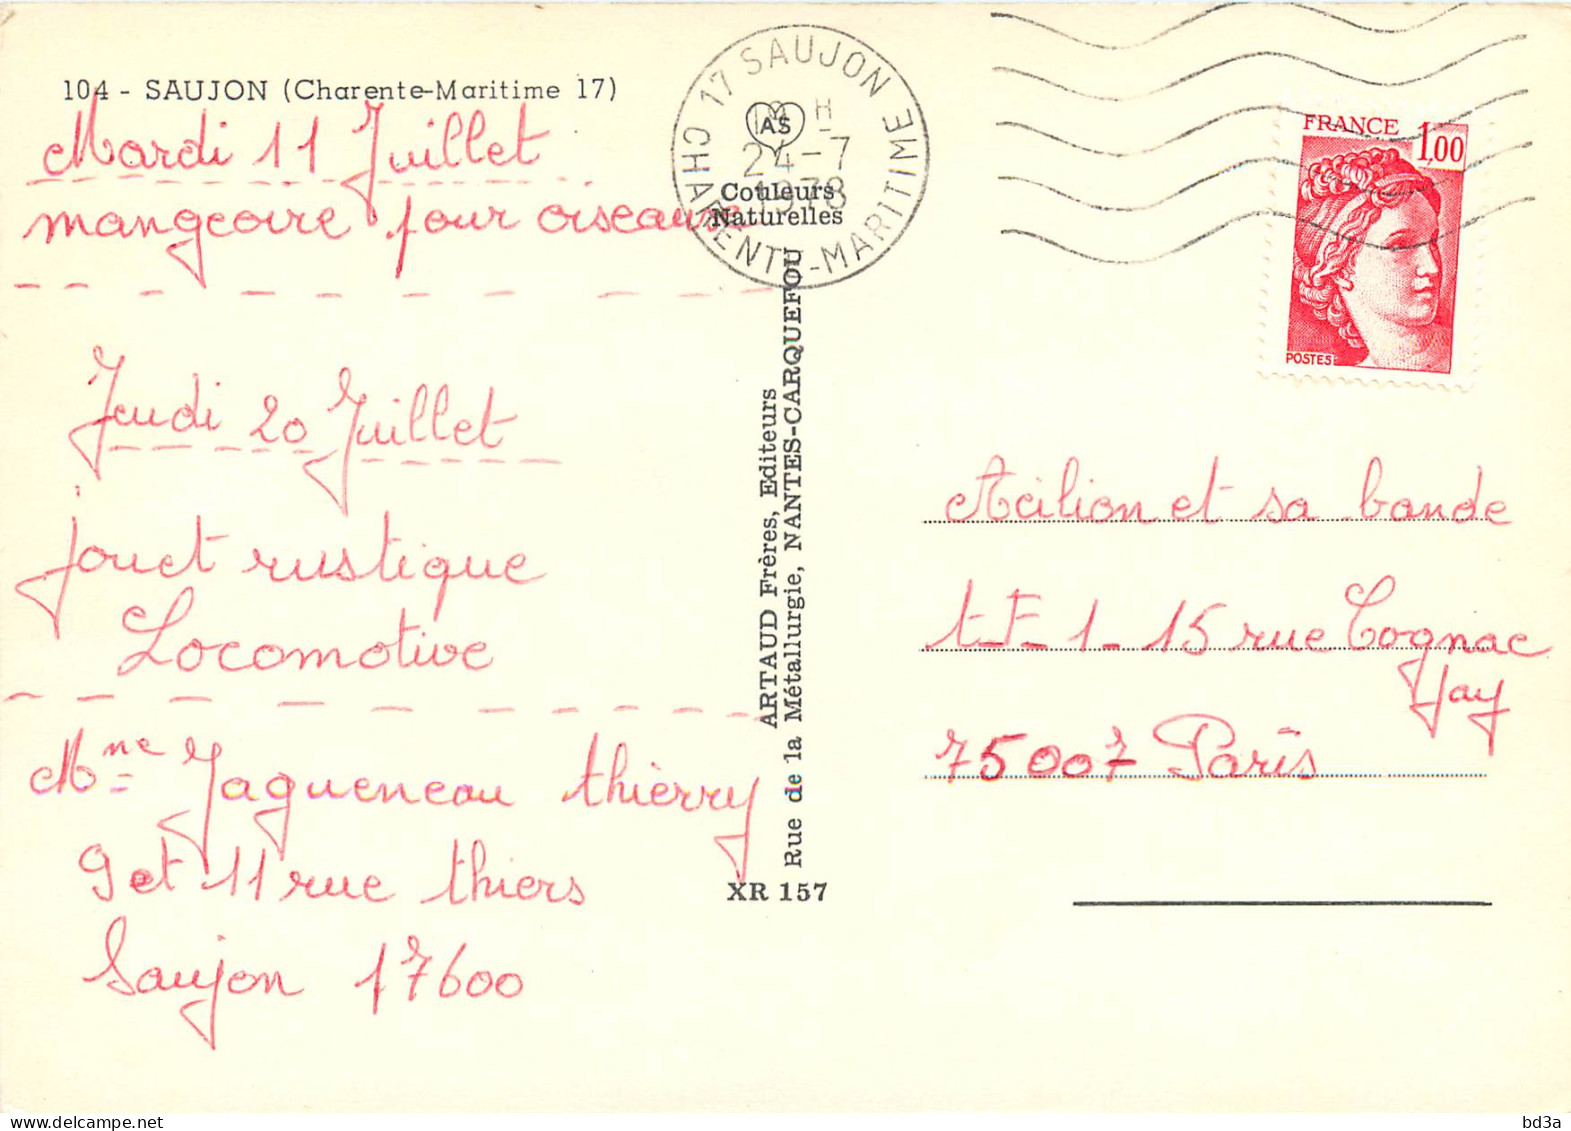 104 - SAUJON (Charente-Maritime 17)
Mardi 11 Juillet
mangeoire pour oiseaux
Jeudi 20 Juillet
jouet rustique
Locomotive
Mme Jaqueneau thierry
9 et 11 rue thiers
Saujon 17600
17 SAUJON
H
24-7
1978
CHARENTE-MARITIME
AS
Couleurs
Naturelles
ARTAUD Frères, Editeurs
Rue de la Métallurgie, NANTES-CARQUEFOU
XR 157
FRANCE 1,00
POSTES
Acilion et sa bande
t-F-1-15 rue Cognac
Jay
75007 Paris
delcampe.net
bd3a